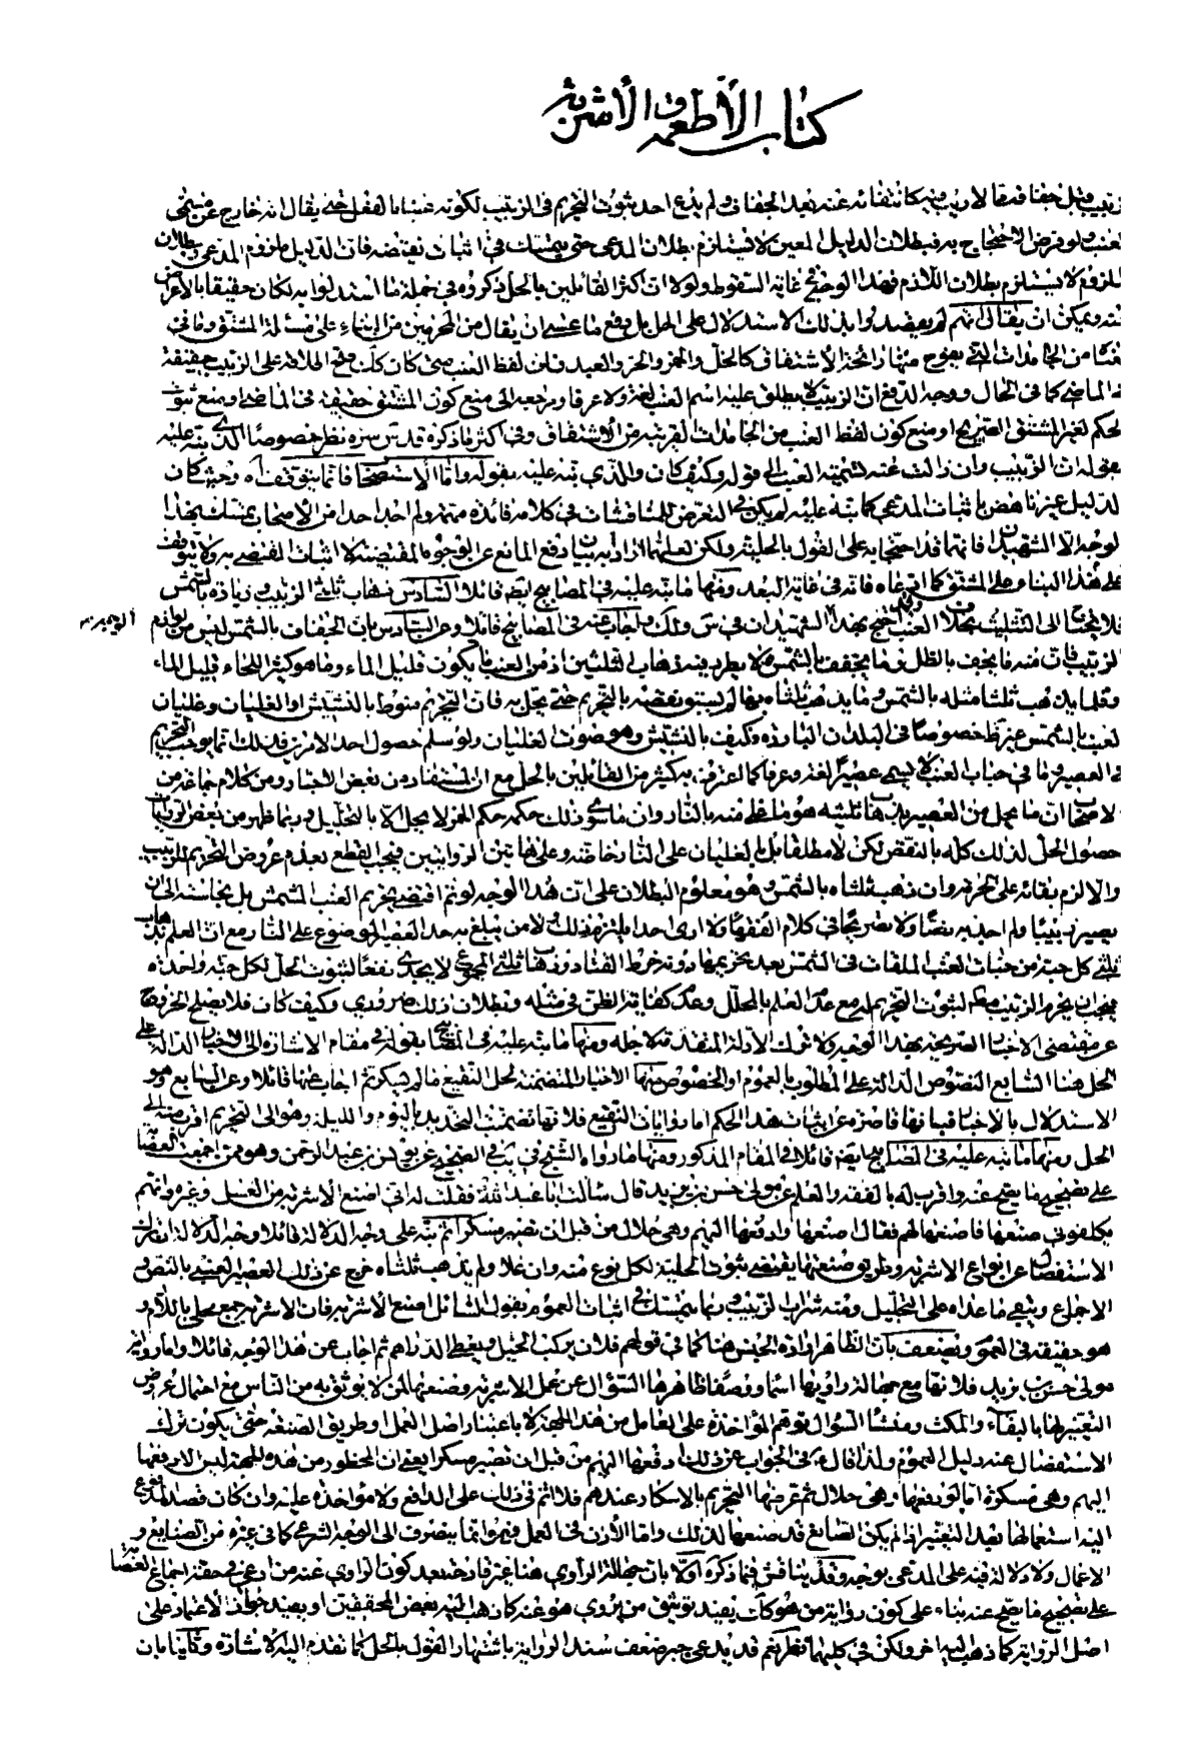 كتاب الأطعمة والأشربة
زبيب وقبل جفافه مما لا ريب فيه كانتفائه عنه بعد الجفاف ولم يدع احد ثبوت التحريم في الزبيب لكونه عنبا بالفعل حتى يقال انه خارج عن مسمى
لعنب ولو فرض الاحتجاج به فبطلان الدليل المعين لا يستلزم بطلان المدعى حتى يتمسك في اثبات نقيضه فان الدليل ملزوم المدعى وبطلان
الملزوم لا يستلزم بطلان اللازم فهذا الوجه في غاية السقوط ولولا ان اكثر القائلين بالحل ذكروه في جملة ما استدلوا به لكان حقيقا بالاعراض
عنه ويمكن ان يقال انهم لم يقصدوا بذلك الاستدلال على الحل بل دفع ما عسى ان يقال من المحرمين من البناء على مسئلة المشتق وما في
من الجامدات التي يفوح منها رائحة الاشتقاق كالخل والخمر والحر والعبد فان لفظ العنب متى كان كك صح اطلاقه على الزبيب حقيقة
الماضي كما في الحال ووجه الدفع ان الزبيب لا يطلق عليه اسم العنب لغة ولا عرفا ومرجعه الى منع كون المشتق حقيقة في الماضي او منع ثبوت
لحكم لغير المشتق الصريح او منع كون لفظ العنب من الجامدات القريبة من الاشتقاق وفي اكثر ما ذكره قدس سره نظر خصوصا الذي نبه عليه
بقوله ان الزبيب وان زالت عنه تسمية العنب الى قوله وكيف كان والذي نبه عليه بقوله واما الاستصحاب فانما يتوقف اه وحيث كان
لدليل غير ناهض باثبات المدعى كما نبه عليه لم يكن في التعرض للمناقشات في كلامه فائدة مهمة ولم اجد احدا من الأصحاب يتمسك بهذا
لوجه الا الشهيدان فانهما قد احتجا به على القول بالحلية ولكن لعلهما ارادا به بيان دفع المانع عن الوجوه المقتضية لا اثبات المقتضي به ولا يتوقف
على هذا البناء على المشتق كما ادعاه فانه في غاية البعد ومنها ما نبه عليه في المصابيح ايضا قائلا السادس ذهاب ثلثي الزبيب وزيادة بالشمس
فلا يحتاج الى التثليث بخلاف العنب وقد احتج بهذا الشهيدان في س ولك واجاب عنه في المصابيح قائلا وعن السادس بان الجفاف بالشمس ليس من لوازم
الزبيب فان منه ما يجف بالظل وما يجفف بالشمس لا يطرد فيه ذهاب الثلثين اذ من العنب ما يكون قليل الماء وما هو كثير اللحاء قليل الماء
وقلما يذهب ثلثا مثله بالشمس وما يذهب ثلثاه بها لم يسبق نقصه بالتحريم حتى يحل به فان التحريم منوط بالنشيش او الغليان وغليان
لعنب بالشمس غير ظ خصوصا في البلدان الباردة وكيف بالنشيش وهو صوت الغليان ولو سلم حصول احد الامرين فذلك انما يوجب التحريم
في العصير وما في حباب العنب لا يسمى عصيرا لغة وعرفا كما اعترف به كثير من القائلين بالحل مع ان المستفاد من بعض الاخبار ومن كلام جماعة من
الاصحاب ان ما يحل من العصير بذهاب ثلثيه هو ما غلى منه بالنار وان ما سوى ذلك حكمه حكم الخمر لا يحل الا بالتخليل وربما ظهر من بعض الروايات
حصول الحل لذلك كله بالنقص لكن لا مطلقا بل بالغليان على النار خاصة وعلى هاتين الروايتين فيجب القطع بعدم عروض التحريم للزبيب
والا لزم بقائه على الحرمة وان ذهب ثلثاه بالشمس وهو معلوم البطلان على ان هذا الوجه لو تم اقتضى تحريم العنب المشمس بل نجاسته الى ان
يصير زبيبا ولم اجد به نصا ولا تصريحا في كلام الفقهاء ولا ارى احدا يلتزم ذلك ولا من يبلغ به حد العصير الموضوع على النار مع ان العلم بذهاب
ثلثي كل حبة من حبات العنب الملقاة في الشمس بعد تحريمها دونه خرط القتاد وذهاب ثلثي المجموع لا يجدي نفعا لثبوت الحل لكل حبة واحدة
فيجب ان يحرم الزبيب لثبوت التحريم له مع عدم العلم بالمحلل وعدم كفاية الظن في مثله وبطلان ذلك ضروري وكيف كان فلا يصلح الخروج
عن مقتضى الاخبار الصريحة بهذا الوجه ولا ترك الادلة المتقدمة لاجله ومنها ما نبه عليه في المصابيح بقوله في مقام الاشارة الى الاخبار الدالة على
الحل هنا السابع النصوص الدالة على المطلوب بالعموم او الخصوص منها الاخبار المتضمنة لحل النقيع ما لم يسكر ثم اجاب عنها قائلا وعن السابع وهو
الاستدلال بالاخبار فبانها قاصرة عن اثبات هذا الحكم اما روايات النقيع فلانها تضمنت التحديد باليوم والليلة وهو الى التحريم اقرب منه الى
الحل ومنها ما نبه عليه في المصابيح ايضا قائلا في المقام المذكور ومنها ما رواه الشيخ في يب في الصحيح عن يونس بن عبد الرحمن وهو ممن اجمعت العصابة
على تصحيح ما يصح عنه واقر له بالفقه والعلم عن مولى حسن بن يزيد قال سألت ابا عبد الله فقلت له اني اصنع الاشربة من العسل وغيره وانهم
يكلفوني صنعها فاصنعها لهم فقال اصنعها وادفعها اليهم وهي حلال من قبل ان تصير مسكرا ثم نبه على وجه الدلالة قائلا وجه الدلالة ان ترك
الاستفصال عن انواع الاشربة وطريق صنعتها يقتضي ثبوت الحلية لكل نوع منه وان غلا ولم يذهب ثلثاه خرج عن ذلك العصير العنبي بالنص و
الاجماع وبقي ما عداه على التحليل ومنه شراب الزبيب وربما يتمسك في اثبات العموم بقول السائل اصنع الاشربة فان الاشربة جمع محلى باللام و
هو حقيقة في العموم ويضعف بان الظاهر ارادة الجنس هنا كما في قولهم فلان يركب الخيل ويعطي الدراهم ثم اجاب عن هذا الوجه قائلا واما رواية
مولى حسن بن يزيد فلانها مع جهالة راويها اسما ووصفا ظاهرها السؤال عن عمل الاشربة وصنعها لمن لا يوثق به من الناس مع احتمال عروض
التغيير لها بالبقاء والمكث ومنشأ السؤال توهم المؤاخذة على العامل من هذه الجهة لا باعتبار اصل العمل وطريق الصنعة حتى يكون ترك
الاستفصال عنه دليل العموم ولذا قال ع في الجواب عن ذلك ادفعها اليهم من قبل ان تصير مسكرا يعني ان المحظور من هذه الجهة ليس الا دفعها
اليهم وهي مسكرة اما لو دفعها وهي حلال ثم عرضها التحريم بالاسكار عندهم فلا اثم في ذلك على الدافع ولا مؤاخذة عليه وان كان قصد المدفوع
اليه استعمالها بعد التغيير اذا لم يكن الصانع قد صنعها لذلك واما الأذن في العمل فهو انما ينصرف الى الوجه الشرعي كما في غيره من الصنايع و
الاعمال ولا دلالة فيه على المدعى بوجه وقد يناقش فيما ذكره اولا بان جهالة الراوي هنا غير قادحة بعد كون الراوي عنه من ادعي في حقه اجماع العصابة
على تصحيح ما يصح عنه بناء على كون رواية من هو كك يفيد توثيق من يروي هو عنه كما ذهب اليه بعض المحققين او يفيد جواز الاعتماد على
اصل الرواية كما ذهب اليه اخر ولكن في كليهما نظر نعم قد يدعى جبر ضعف سند الرواية باشتهار القول بالحل كما تقدم اليه الاشارة وثانيا بان